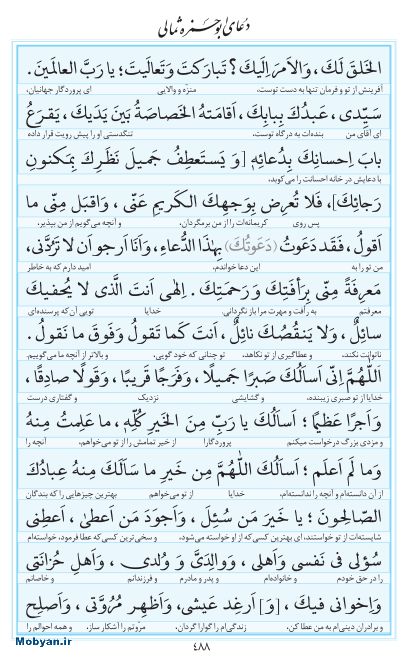 دعای ابوحمزه ثمالی
الخَلقَ لَكَ، وَالاَمرَ اِلَيكَ؟ تَبارَكتَ وَتَعالَيتَ؛ يا رَبَّ العالَمينَ.
آفرینش از تو و فرمان تنها به دست توست، منزّه و والایی ای پروردگار جهانیان،
سَيِّدی، عَبدُكَ بِبابِكَ، اَقامَتهُ الخَصاصَةُ بَينَ يَدَيكَ، يَقرَعُ
ای آقای من بنده‌ات به درگاه توست، تنگدستی او را پیش رویت قرار داده
بابَ اِحسانِكَ بِدُعائِهِ [وَ يَستَعطِفُ جَميلَ نَظَرِكَ بِمَكنونِ
با دعایش در خانه احسانت را می‌کوبد.
رَجائِكَ]، فَلا تُعرِض بِوَجهِكَ الكَريمِ عَنّی، وَاقبَل مِنّی ما
پس روی کریمانه‌ات را از من برمگردان، و آنچه می‌گویم از من بپذیر.
اَقولُ، فَقَد دَعَوتُ (دَعَوتُكَ) بِهذَا الدُّعاءِ، وَاَنَا اَرجو اَن لا تَرُدَّنی،
من تو را به این دعا خواندم، امید دارم که به خاطر
مَعرِفَةً مِنّی بِرَأفَتِكَ وَرَحمَتِكَ. اِلهی اَنتَ الَّذی لا يُحفيكَ
معرفتم به رأفت و مهرت مرا بازنگردانی. خدایا تویی آن که پرسنده‌ای
سائِلٌ، وَلا يَنقُصُكَ نائِلٌ، اَنتَ كَما تَقولُ وَفَوقَ ما نَقولُ.
ناتوانت نکند، و عطاگیری از تو نکاهد، تو چنانی که خود گویی، و بالاتر از آنچه ما می‌گوییم.
اَللّهُمَّ اِنّی اَسأَلُكَ صَبرًا جَميلًا، وَفَرَجًا قَريبًا، وَقَولًا صادِقًا،
خدایا از تو صبری زیبنده، و گشایشی نزدیک و گفتاری درست
وَاَجرًا عَظيمًا؛ اَسأَلُكَ يا رَبِّ مِنَ الخَيرِ كُلِّهِ، ما عَلِمتُ مِنهُ
و مزدی بزرگ درخواست میکنم پروردگارا از خیر تمامش را از تو می‌خواهم، آنچه را
وَما لَم اَعلَم؛ اَسأَلُكَ اللّهُمَّ مِن خَيرِ ما سَأَلَكَ مِنهُ عِبادُكَ
از آن دانسته‌ام و آنچه را ندانسته‌ام، خدایا از تو می‌خواهم بهترین چیزهایی را که بندگان
الصّالِحونَ؛ يا خَيرَ مَن سُئِلَ، وَاَجوَدَ مَن اَعطی، اَعطِنی
شایسته‌ات از تو خواستند، ای بهترین کسی که از او خواسته می‌شود، و سخی‌ترین کسی که عطا فرمود، خواسته‌ام
سُؤلی فی نَفسی وَاَهلی، وَوالِدَیَّ وَ وُلدی، وَاَهلِ حُزانَتی
را در حق خودم و خانواده‌ام و پدر و مادرم و فرزندانم و خاصانم
وَاِخوانی فيكَ، [وَ] اَرغِد عَيشی، وَاَظهِر مُرُوَّتی، وَاَصلِح
و برادران دینی‌ام به من عطا کن، زندگی‌ام را گوارا گردان. مروّتم را آشکار ساز. و همه احوالم را
۴۸۸
Mobyan.ir